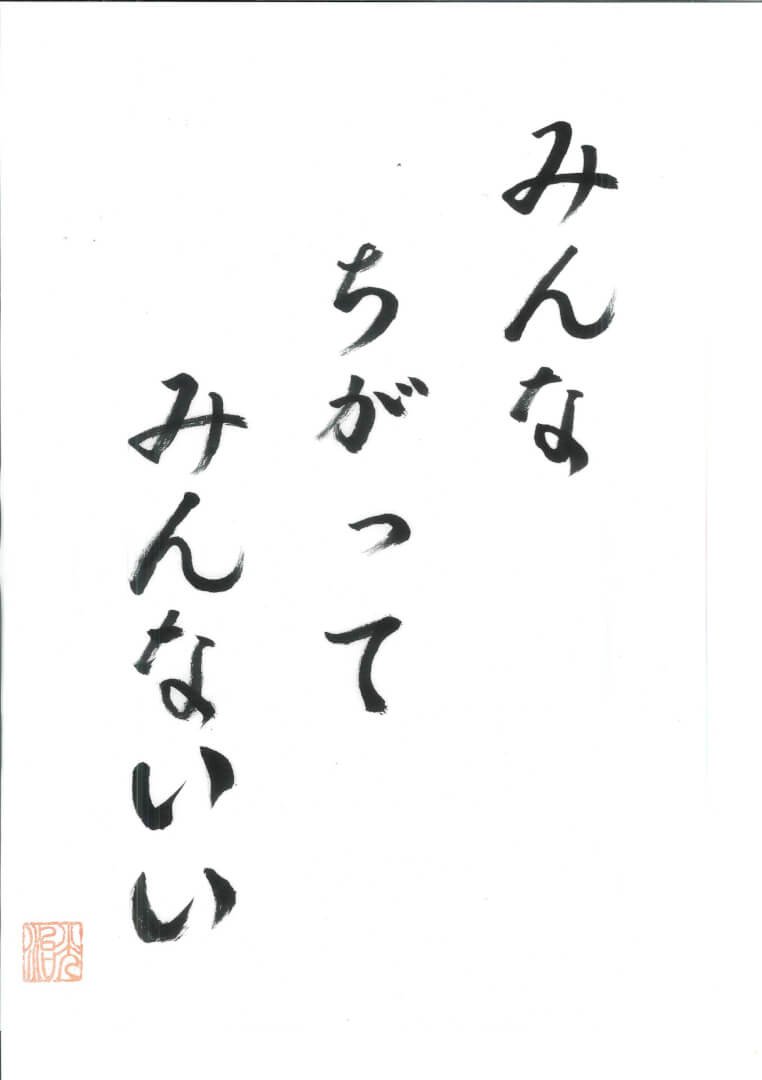 みんな
ちがって
みんないい